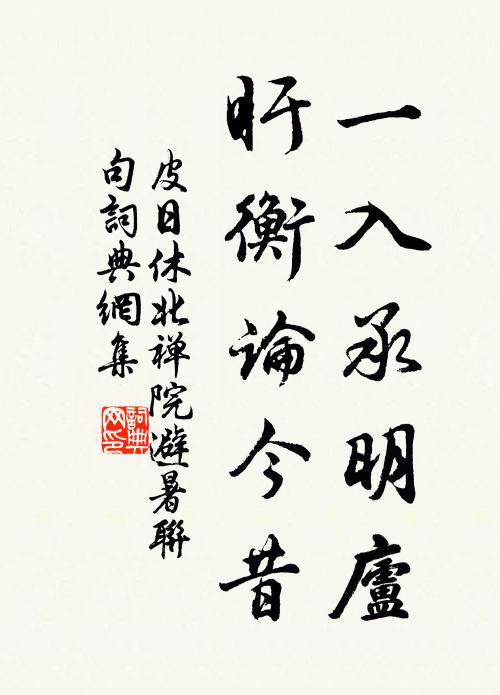 一入承明廬
盱衡論今昔
皮日休北禅院避暑聯
句詞典網集
詞典網印